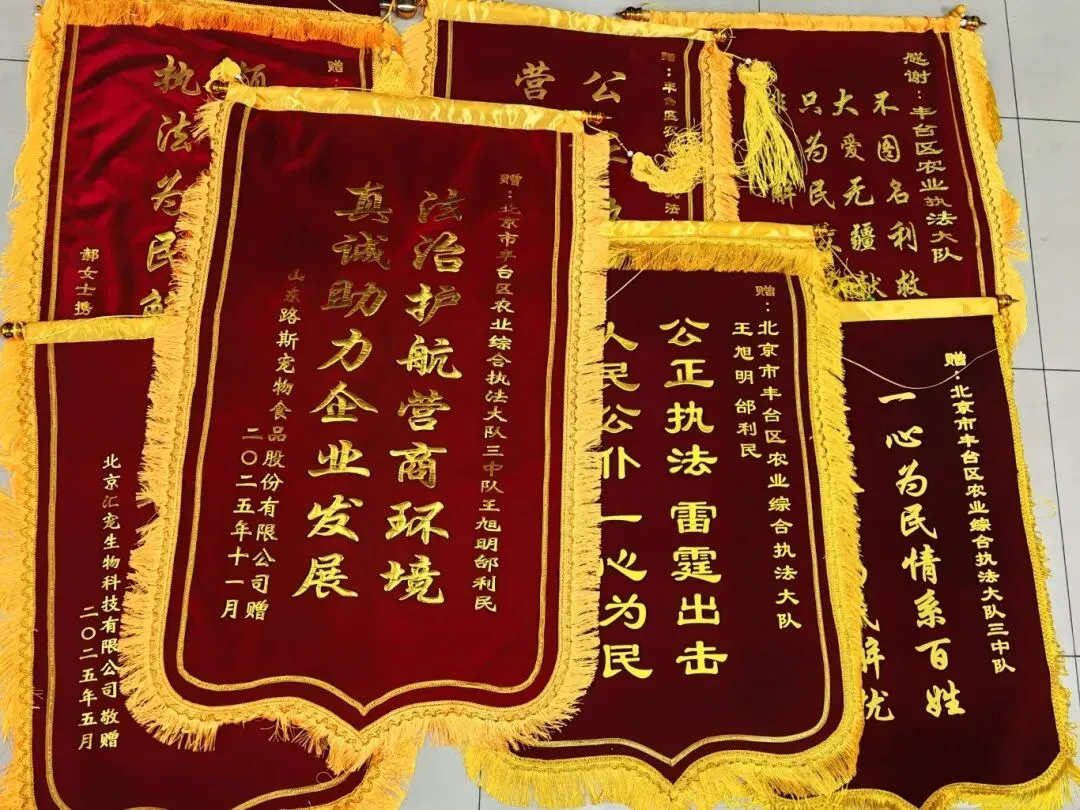 赠：北京市丰台区农业综合执法大队三中队王旭明邰利民
法治护航营商环境
真诚助力企业发展
山东路斯宠物食品股份有限公司赠
二〇二五年十一月
赠：北京市丰台区农业综合执法大队
王旭明 邰利民
公正执法 雷霆出击
人民公仆 一心为民
赠：北京市丰台区农业综合执法大队三中队
一心为民情系百姓
民解忧
感谢：丰台区农业执法大队
不图名利救
大爱无疆献
只为民
解
赠：丰台区农
民法
公
营
赠
执法为民解
郝女士携
北京汇宠生物科技有限公司 敬赠
二〇二五年五月